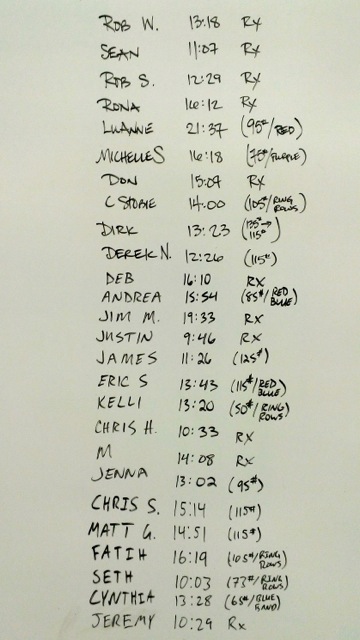 ROB W. 13:18 RX
SEAN 11:07 RX
ROB S. 12:29 RX
RONA 16:12 RX
LUANNE 21:37 (95#/RED)
MICHELLE S 16:18 (75#/PURPLE)
DON 15:07 RX
C STOBIE 14:00 (105#/RING ROWS)
DIRK 13:23 (135#→115#)
DEREK N. 12:26 (115#)
DEB 16:10 RX
ANDREA 15:54 (85#/RED BLUE)
JIM M. 19:33 RX
JUSTIN 9:46 RX
JAMES 11:26 (125#)
ERIC S 13:43 (115#/RED BLUE)
KELLI 13:20 (50#/RING ROWS)
CHRIS H. 10:33 RX
M 14:08 RX
JENNA 13:02 (95#)
CHRIS S. 15:14 (115#)
MATT G. 14:51 (115#)
FATIH 16:19 (105#/RING ROWS)
SETH 10:03 (73#/RING ROWS)
CYNTHIA 13:28 (65#/BLUE BAND)
JEREMY 10:29 Rx